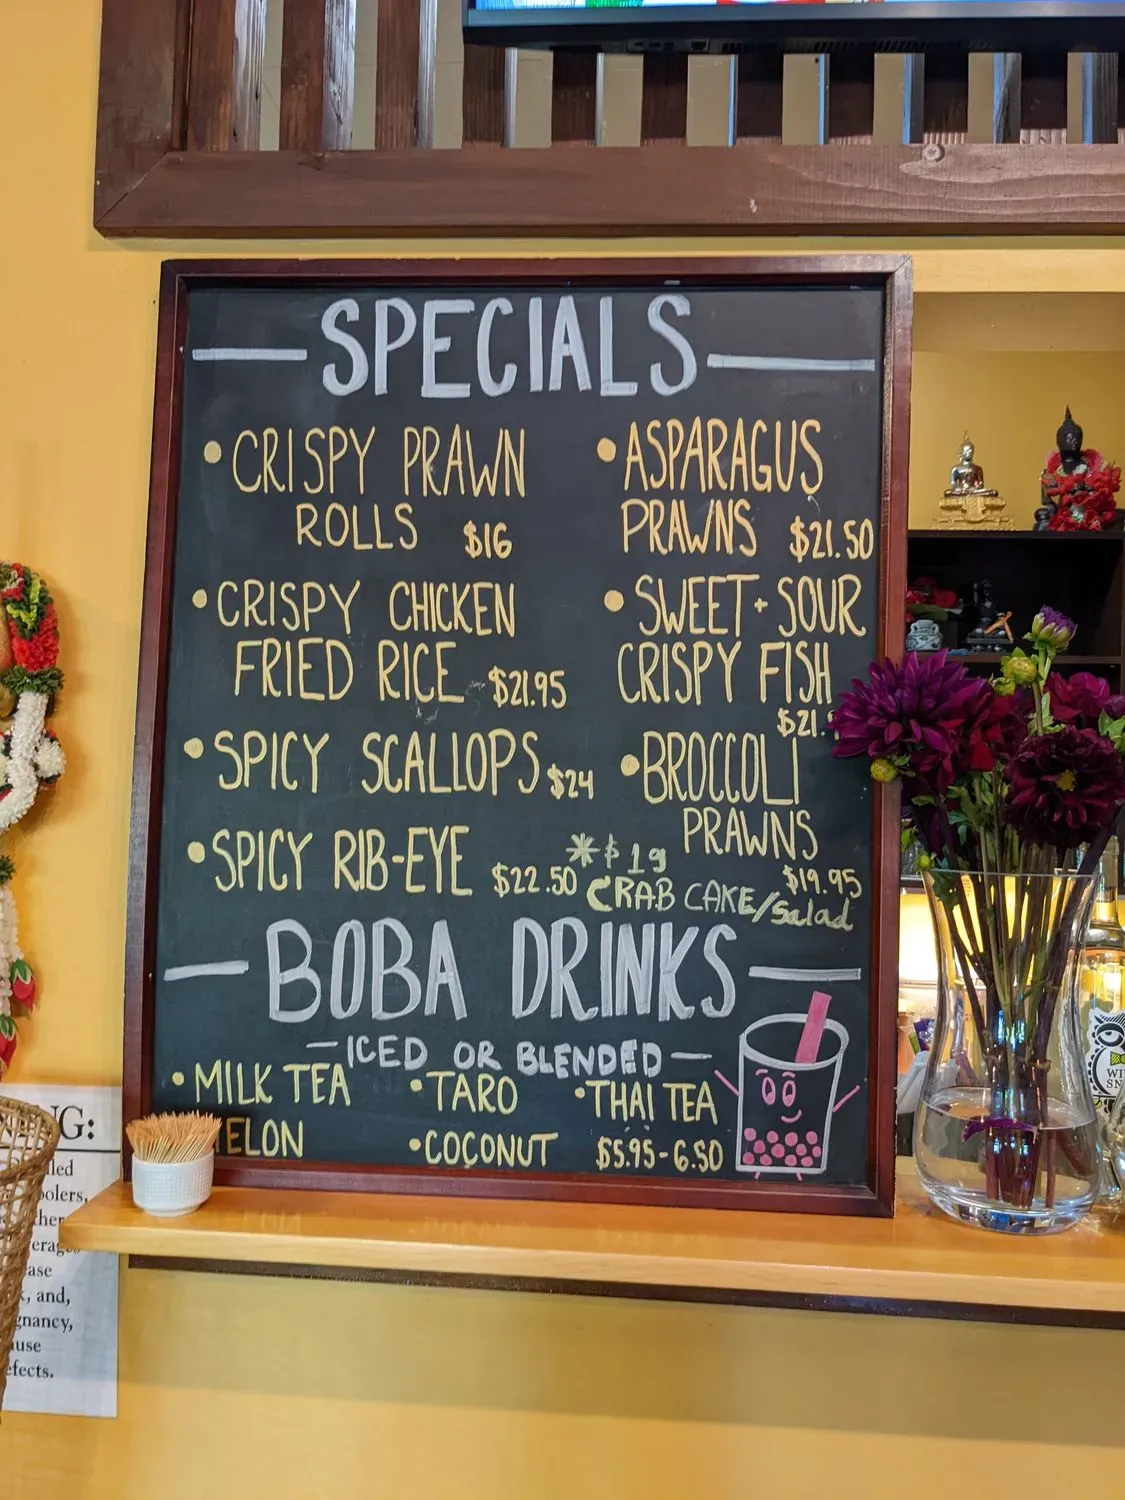 SPECIALS
• CRISPY PRAWN
ROLLS $16
• CRISPY CHICKEN
FRIED RICE $21.95
• SPICY SCALLOPS $24
• SPICY RIB-EYE $22.50
• ASPARAGUS
PRAWNS $21.50
• SWEET + SOUR
CRISPY FISH
$21.
• BROCCOLI
PRAWNS
$19.95
*$19
CRAB CAKE/Salad
BOBA DRINKS
—ICED OR BLENDED—
• MILK TEA • TARO • THAI TEA
ELON • COCONUT $5.95-6.50
G:
and,